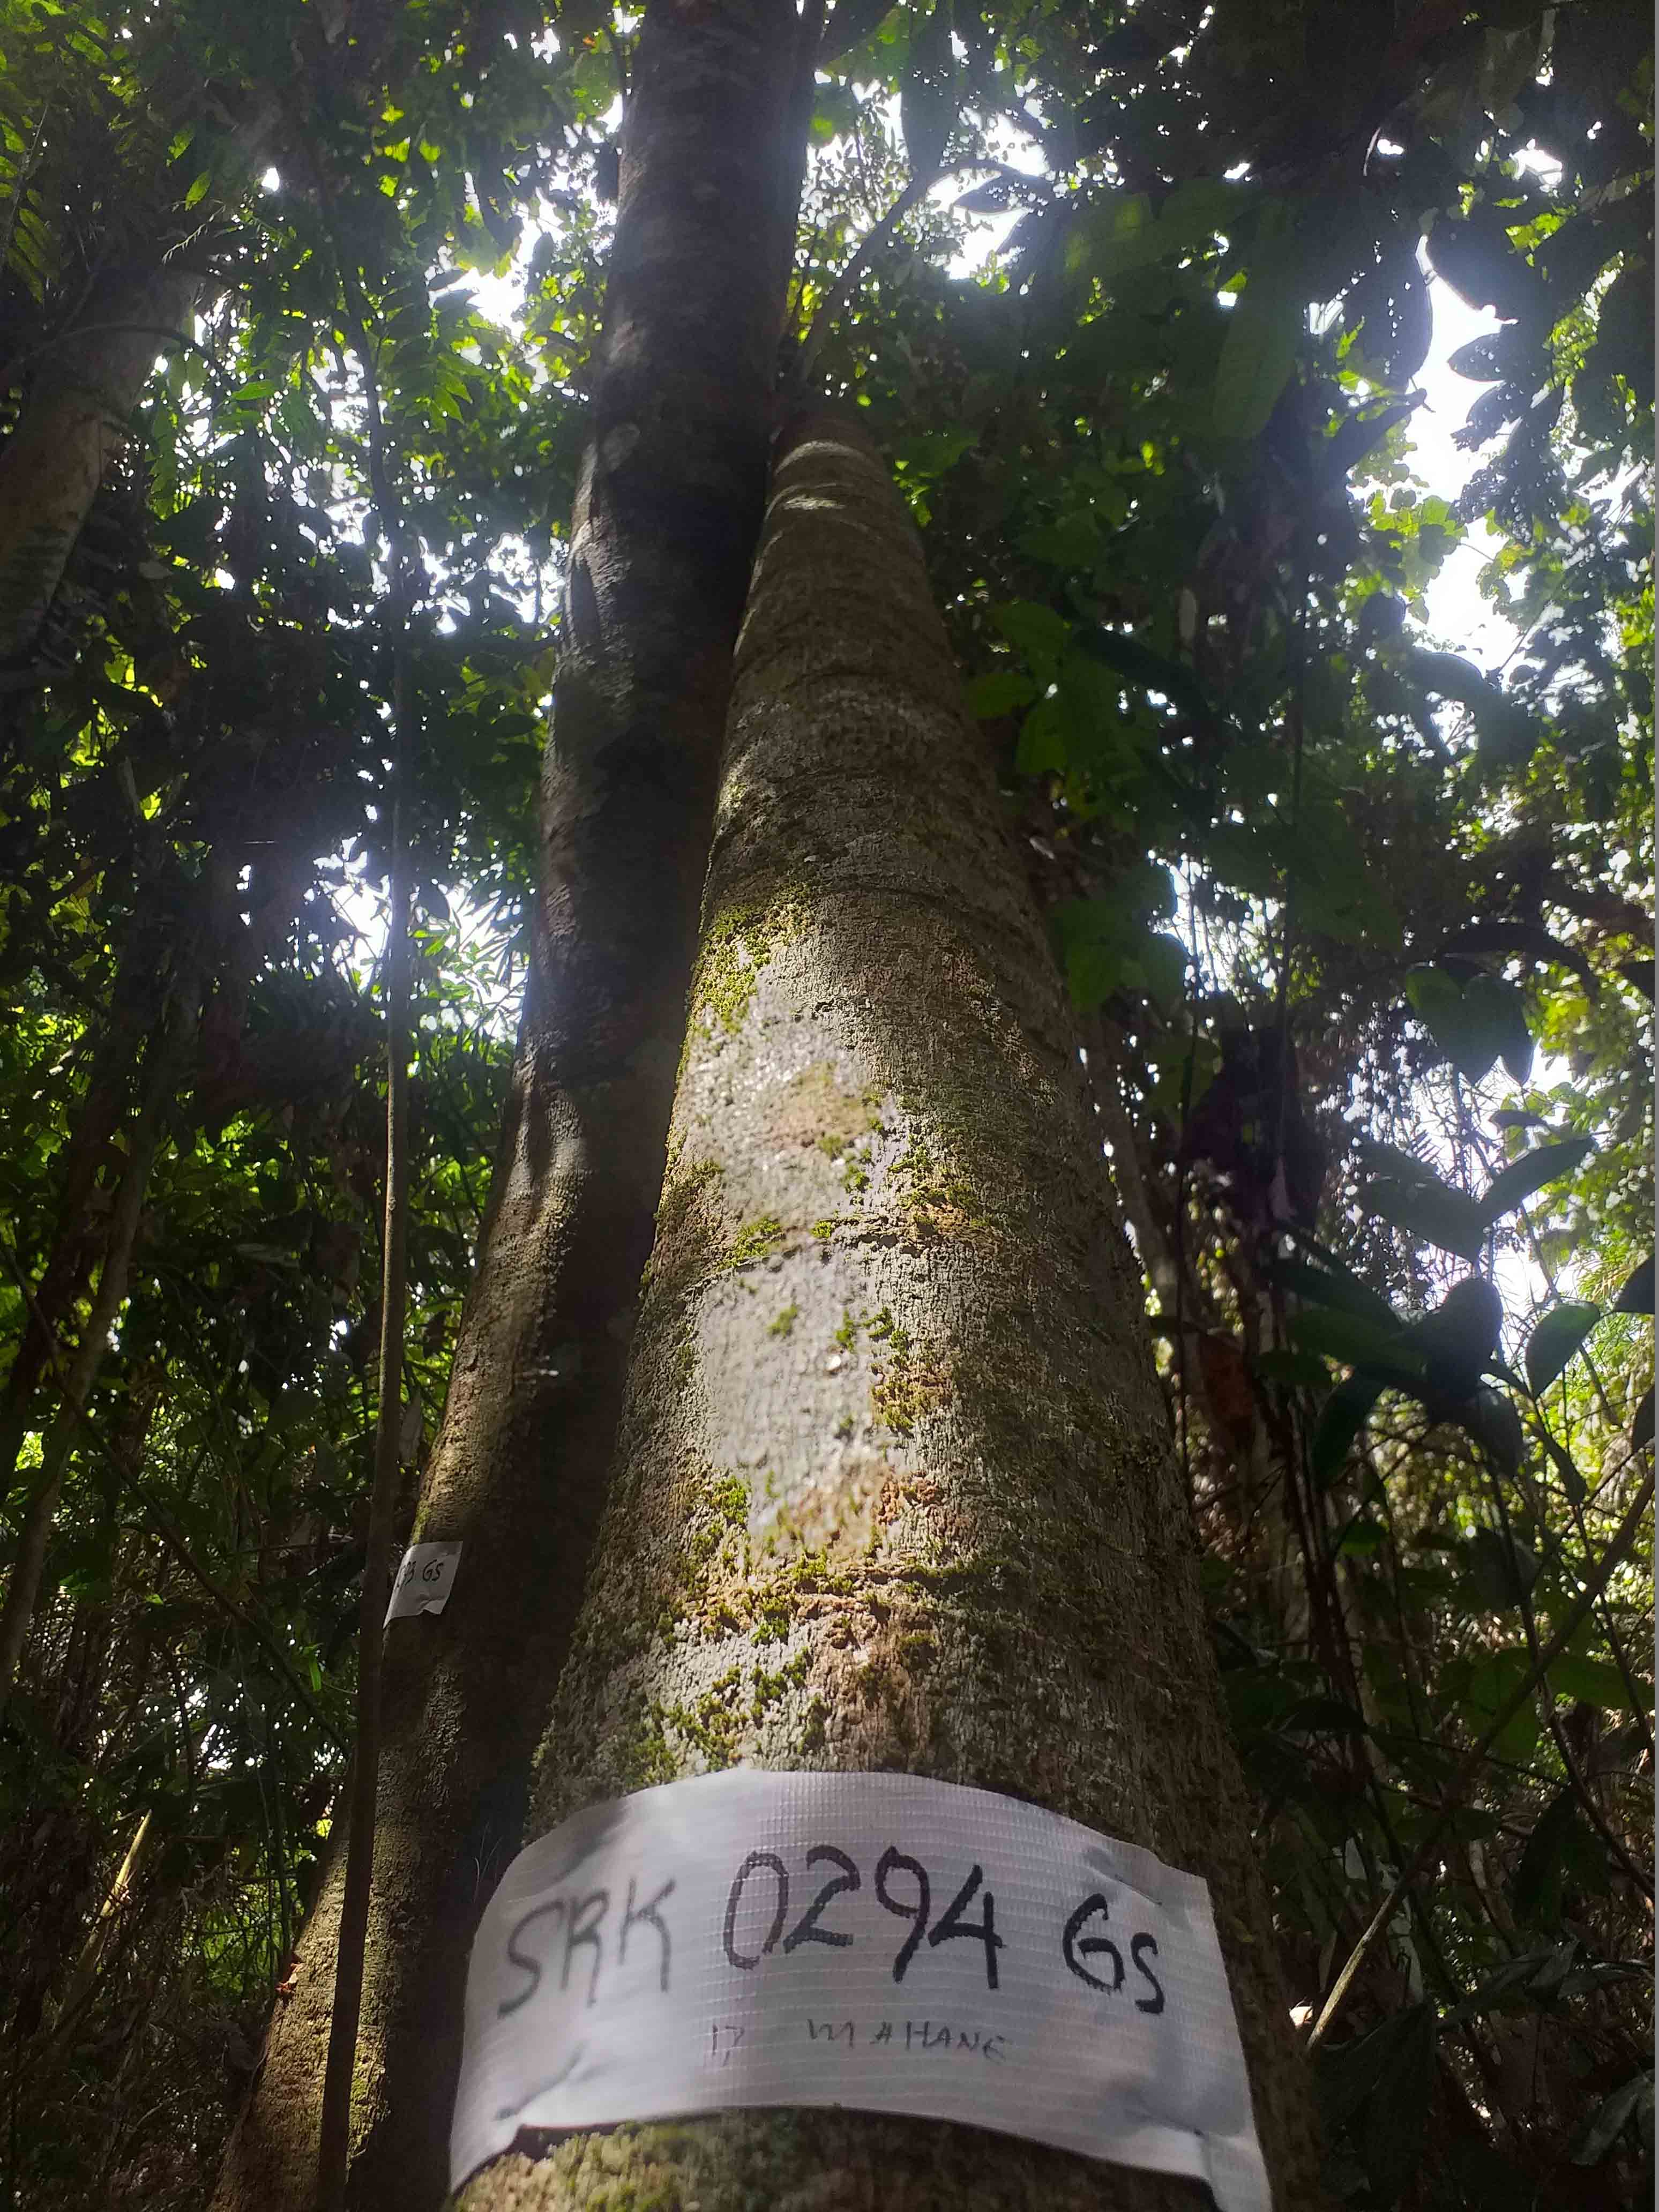 93 GS
SRK 0294 GS
17 MAHANE